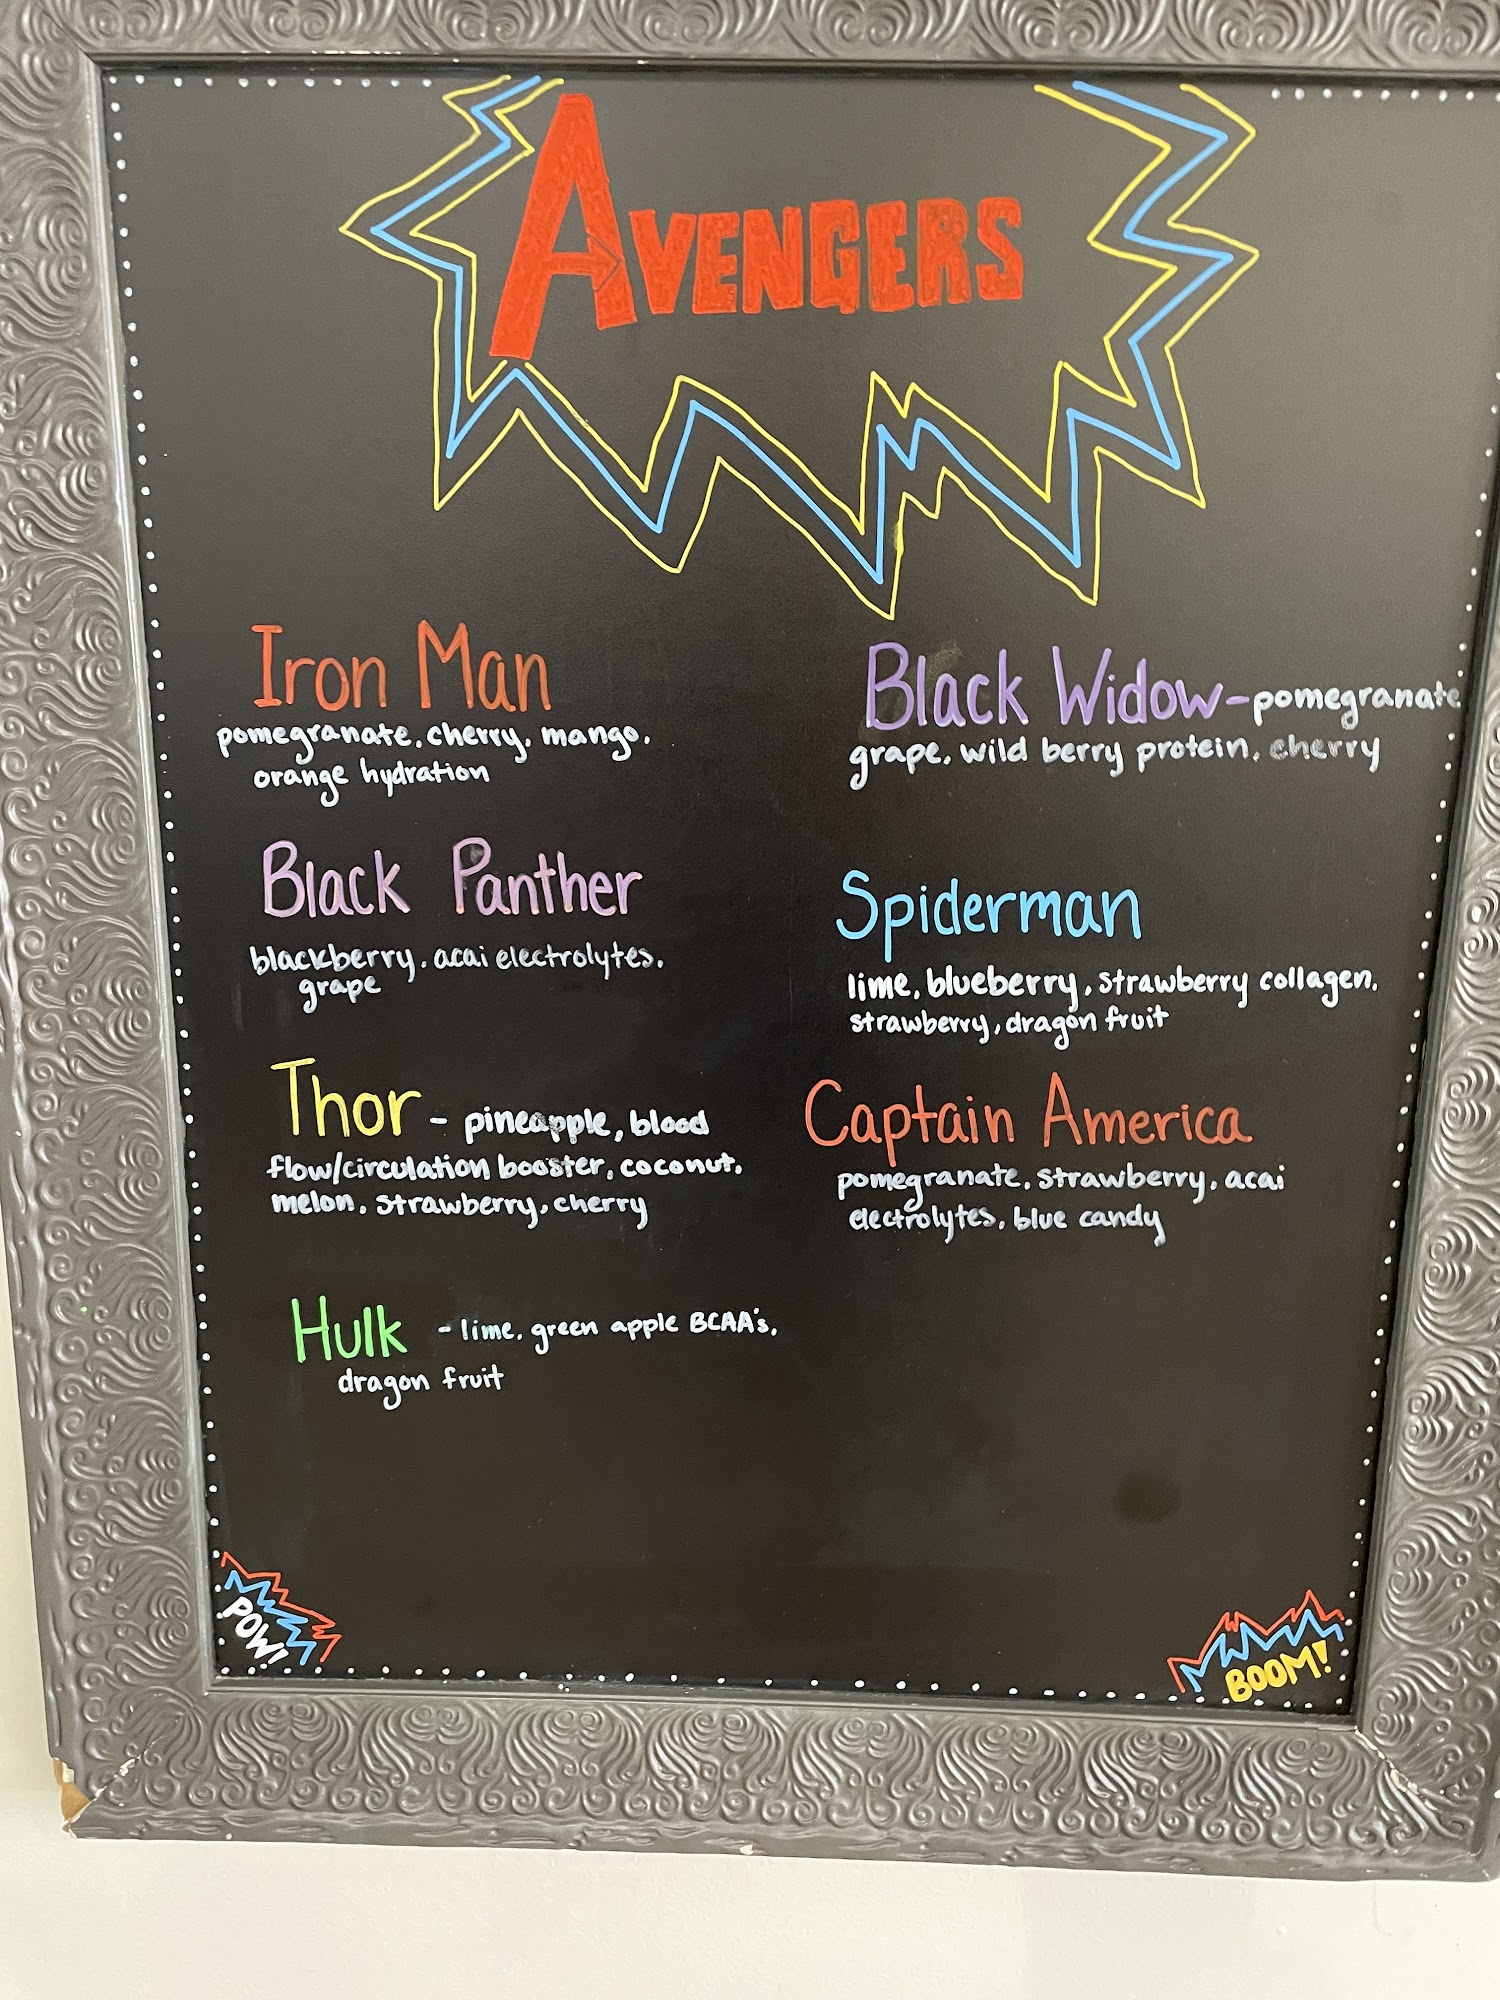 AVENGERS
Iron Man
pomegranate, cherry, mango,
orange hydration
Black Panther
blackberry, acai electrolytes,
grape
Thor - pineapple, blood
flow/circulation booster, coconut,
melon, strawberry, cherry
Hulk - lime, green apple BCAA's,
dragon fruit
Black Widow - pomegranate
grape, wild berry protein, cherry
Spiderman
lime, blueberry, strawberry collagen,
strawberry, dragon fruit
Captain America
pomegranate, strawberry, acai
electrolytes, blue candy
POW!
BOOM!